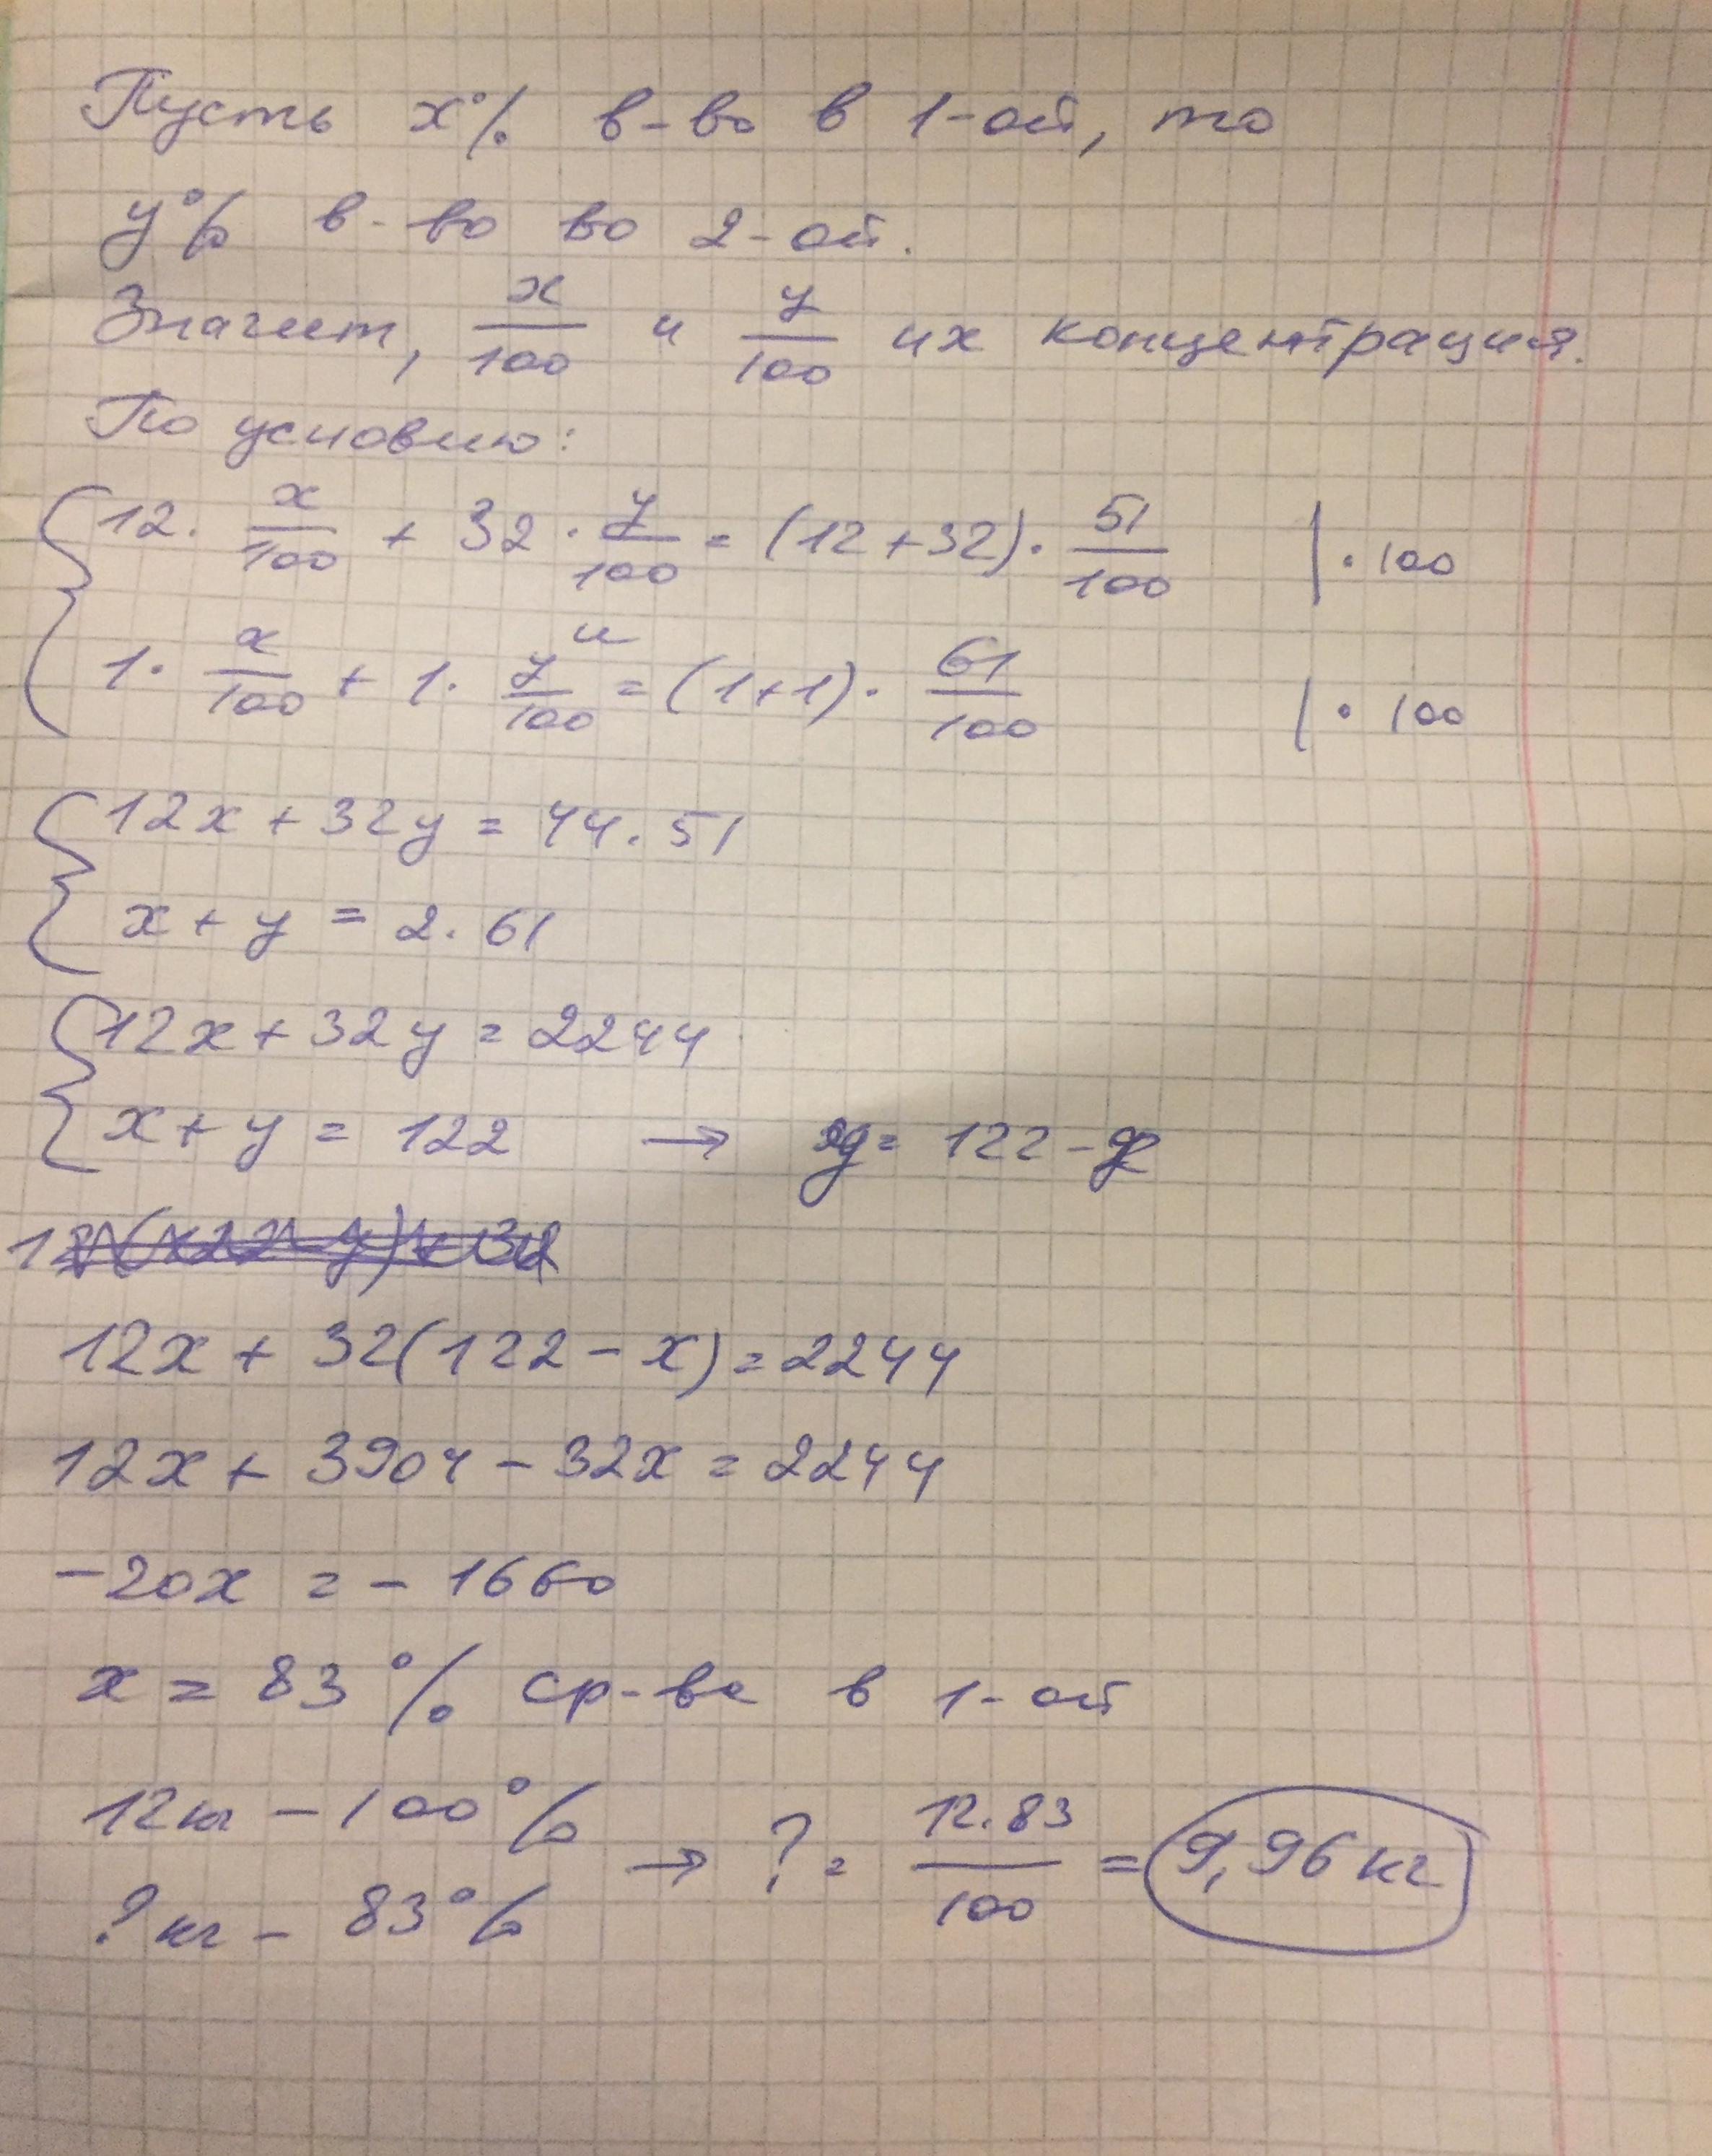 Пусть x% в-во в 1-ой, то
y% в-во во 2-ой.
Значит, x/100 и y/100 их концентрация.
По условию:
12 · x/100 + 32 · y/100 = (12+32) · 51/100 | · 100
и
1 · x/100 + 1 · y/100 = (1+1) · 61/100 | · 100
12x + 32y = 44 · 51
x + y = 2 · 61
12x + 32y = 2244
x + y = 122 → y = 122 - x
12x + 32(122 - x) = 2244
12x + 3904 - 32x = 2244
-20x = -1660
x = 83% ср-ва в 1-ой
12кг - 100%
?кг - 83%
→ ? = 12·83/100 = 9,96 кг